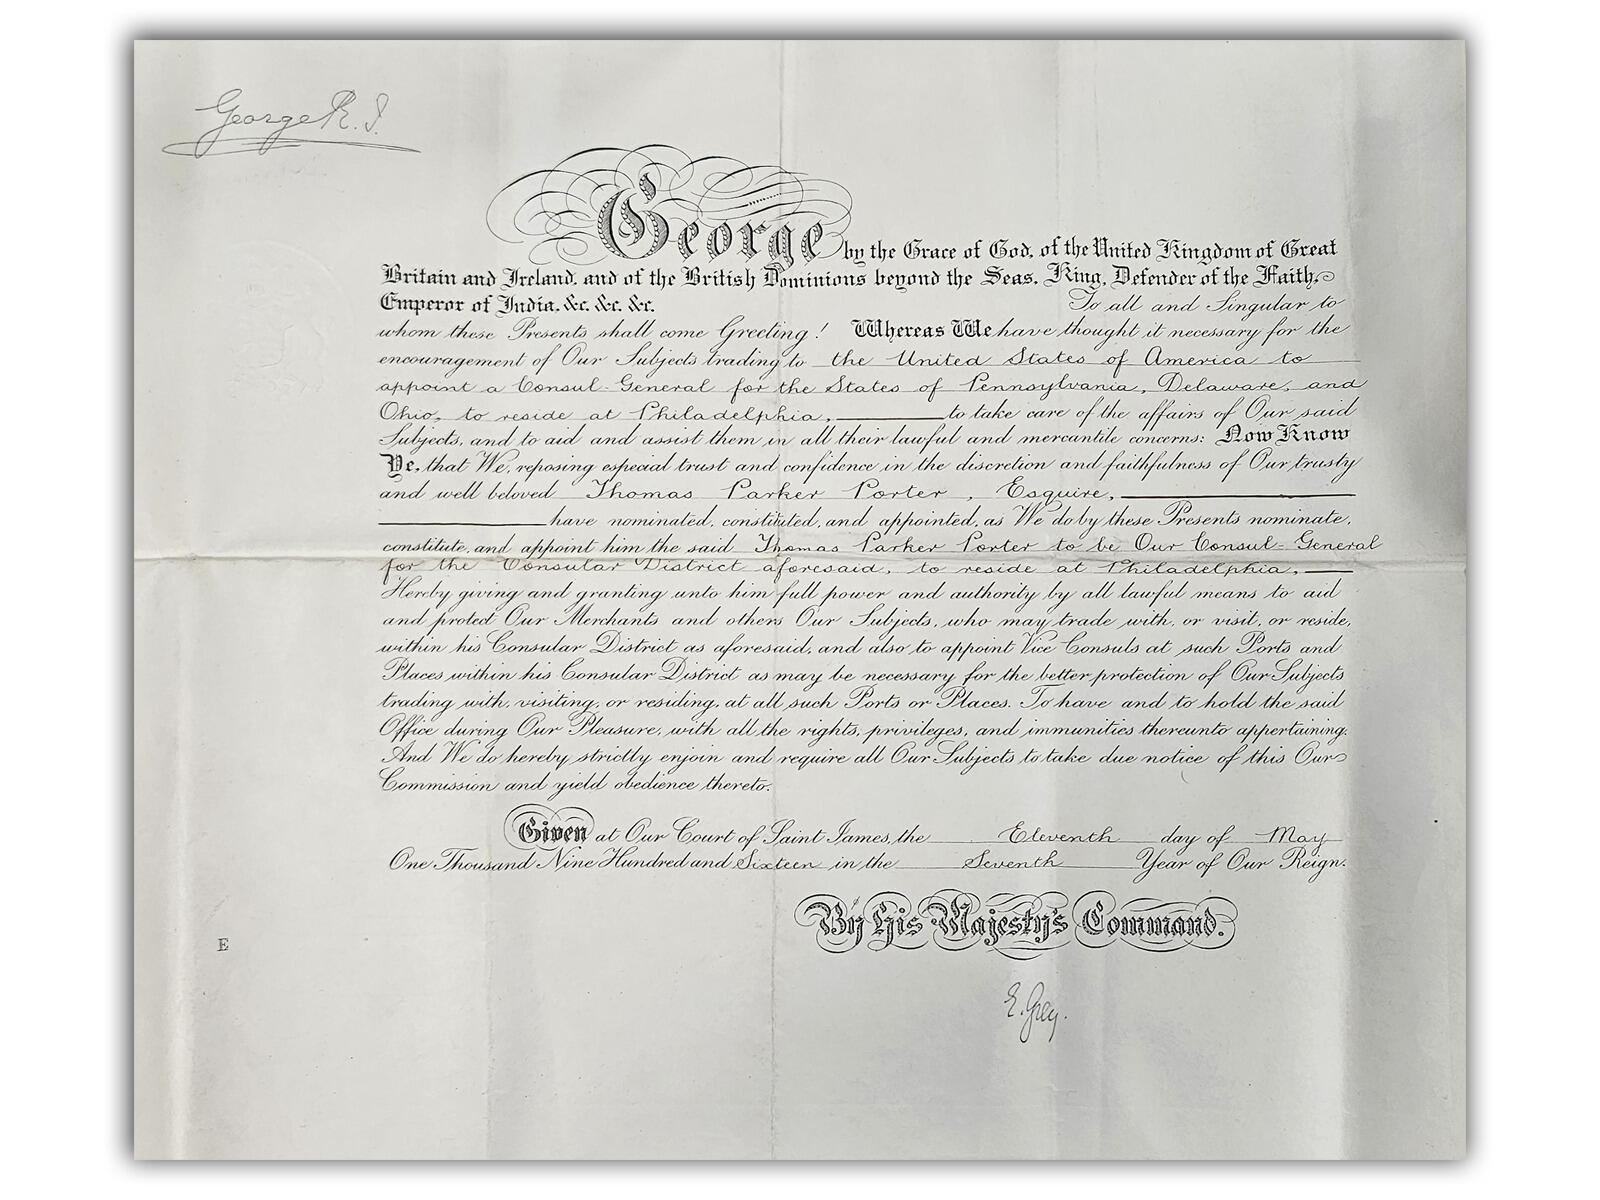 George R. I.
George by the Grace of God, of the United Kingdom of Great
Britain and Ireland, and of the British Dominions beyond the Seas, King, Defender of the Faith,
Emperor of India, &c. &c. &c. To all and Singular to
whom these Presents shall come Greeting! Whereas We have thought it necessary for the
encouragement of Our Subjects trading to the United States of America to
appoint a Consul-General for the States of Pennsylvania, Delaware, and
Ohio, to reside at Philadelphia, to take care of the affairs of Our said
Subjects, and to aid and assist them in all their lawful and mercantile concerns: Now Know
Ye, that We, reposing especial trust and confidence in the discretion and faithfulness of Our trusty
and well beloved Thomas Parker Porter, Esquire,
have nominated, constituted, and appointed, as We do by these Presents nominate,
constitute, and appoint him the said Thomas Parker Porter to be Our Consul-General
for the Consular District aforesaid, to reside at Philadelphia,
Hereby giving and granting unto him full power and authority by all lawful means to aid
and protect Our Merchants and others Our Subjects, who may trade with, or visit, or reside,
within his Consular District as aforesaid, and also to appoint Vice Consuls at such Ports and
Places within his Consular District as may be necessary for the better protection of Our Subjects
trading with, visiting, or residing, at all such Ports or Places. To have and to hold the said
Office during Our Pleasure, with all the rights, privileges, and immunities thereunto appertaining.
And We do hereby strictly enjoin and require all Our Subjects to take due notice of this Our
Commission and yield obedience thereto.
Given at Our Court of Saint James, the Eleventh day of May
One Thousand Nine Hundred and Sixteen in the Seventh Year of Our Reign.
By His Majesty's Command.
E
E. Grey.